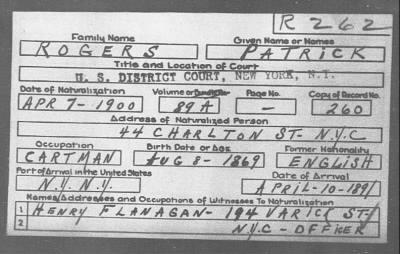 R 262
Family Name Given Name or Names
ROGERS PATRICK
Title and Location of Court
U. S. DISTRICT COURT, NEW YORK, N.Y.
Date of Naturalization Volume or Page No. Copy of Record No.
APR 7-1900 89A - 260
Address of Naturalized Person
44 CHARLTON ST- N.Y.C
Occupation Birth Date or Age Former Nationality
CARTMAN AUG 8-1869 ENGLISH
Port of Arrival in the United States Date of Arrival
N.Y. N.Y. APRIL-10-1891
Names, Addresses and Occupations of Witnesses To Naturalization
1 HENRY FLANAGAN- 194 VARICK ST-
2 N.Y.C - OFFICER